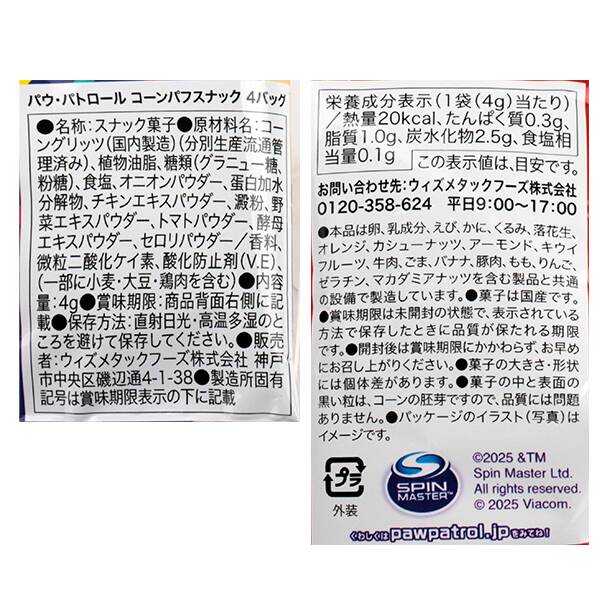 パウ・パトロール コーンパフスナック 4バッグ
●名称:スナック菓子●原材料名:コー
ングリッツ(国内製造)(分別生産流通管
理済み)、植物油脂、糖類(グラニュー糖、
粉糖)、食塩、オニオンパウダー、蛋白加水
分解物、チキンエキスパウダー、澱粉、野
菜エキスパウダー、トマトパウダー、酵母
エキスパウダー、セロリパウダー/香料、
微粒二酸化ケイ素、酸化防止剤(V.E)、
(一部に小麦・大豆・鶏肉を含む)●内容
量:4g●賞味期限:商品背面右側に記
載●保存方法:直射日光・高温多湿のと
ころを避けて保存してください。●販売
者:ウィズメタックフーズ株式会社 神戸
市中央区磯辺通4-1-38●製造所固有
記号は賞味期限表示の下に記載
栄養成分表示(1袋(4g)当たり)
/熱量20kcal、たんぱく質0.3g、
脂質1.0g、炭水化物2.5g、食塩相
当量0.1g この表示値は、目安です。
お問い合わせ先:ウィズメタックフーズ株式会社
0120-358-624 平日9:00~17:00
●本品は卵、乳成分、えび、かに、くるみ、落花生、
オレンジ、カシューナッツ、アーモンド、キウイ
フルーツ、牛肉、ごま、バナナ、豚肉、もも、りんご、
ゼラチン、マカダミアナッツを含む製品と共通
の設備で製造しています。●菓子は国産です。
●賞味期限は未開封の状態で、表示されている
方法で保存したときに品質が保たれる期限
です。●開封後は賞味期限にかかわらず、お早め
にお召し上がりください。●菓子の大きさ・形状
には個体差があります。●菓子の中と表面の
黒い粒は、コーンの胚芽ですので、品質には問題
ありません。●パッケージのイラスト(写真)は
イメージです。
プラ
外装
SPIN
MASTER™
©2025 &TM
Spin Master Ltd.
All rights reserved.
© 2025 Viacom.
くわしくはpawpatrol.jpをみてね!